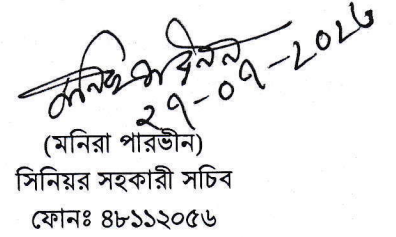 ২৭-০৭-২০২৬
(মনিরা পারভীন)
সিনিয়র সহকারী সচিব
ফোনঃ ৪৮১১২০৫৬